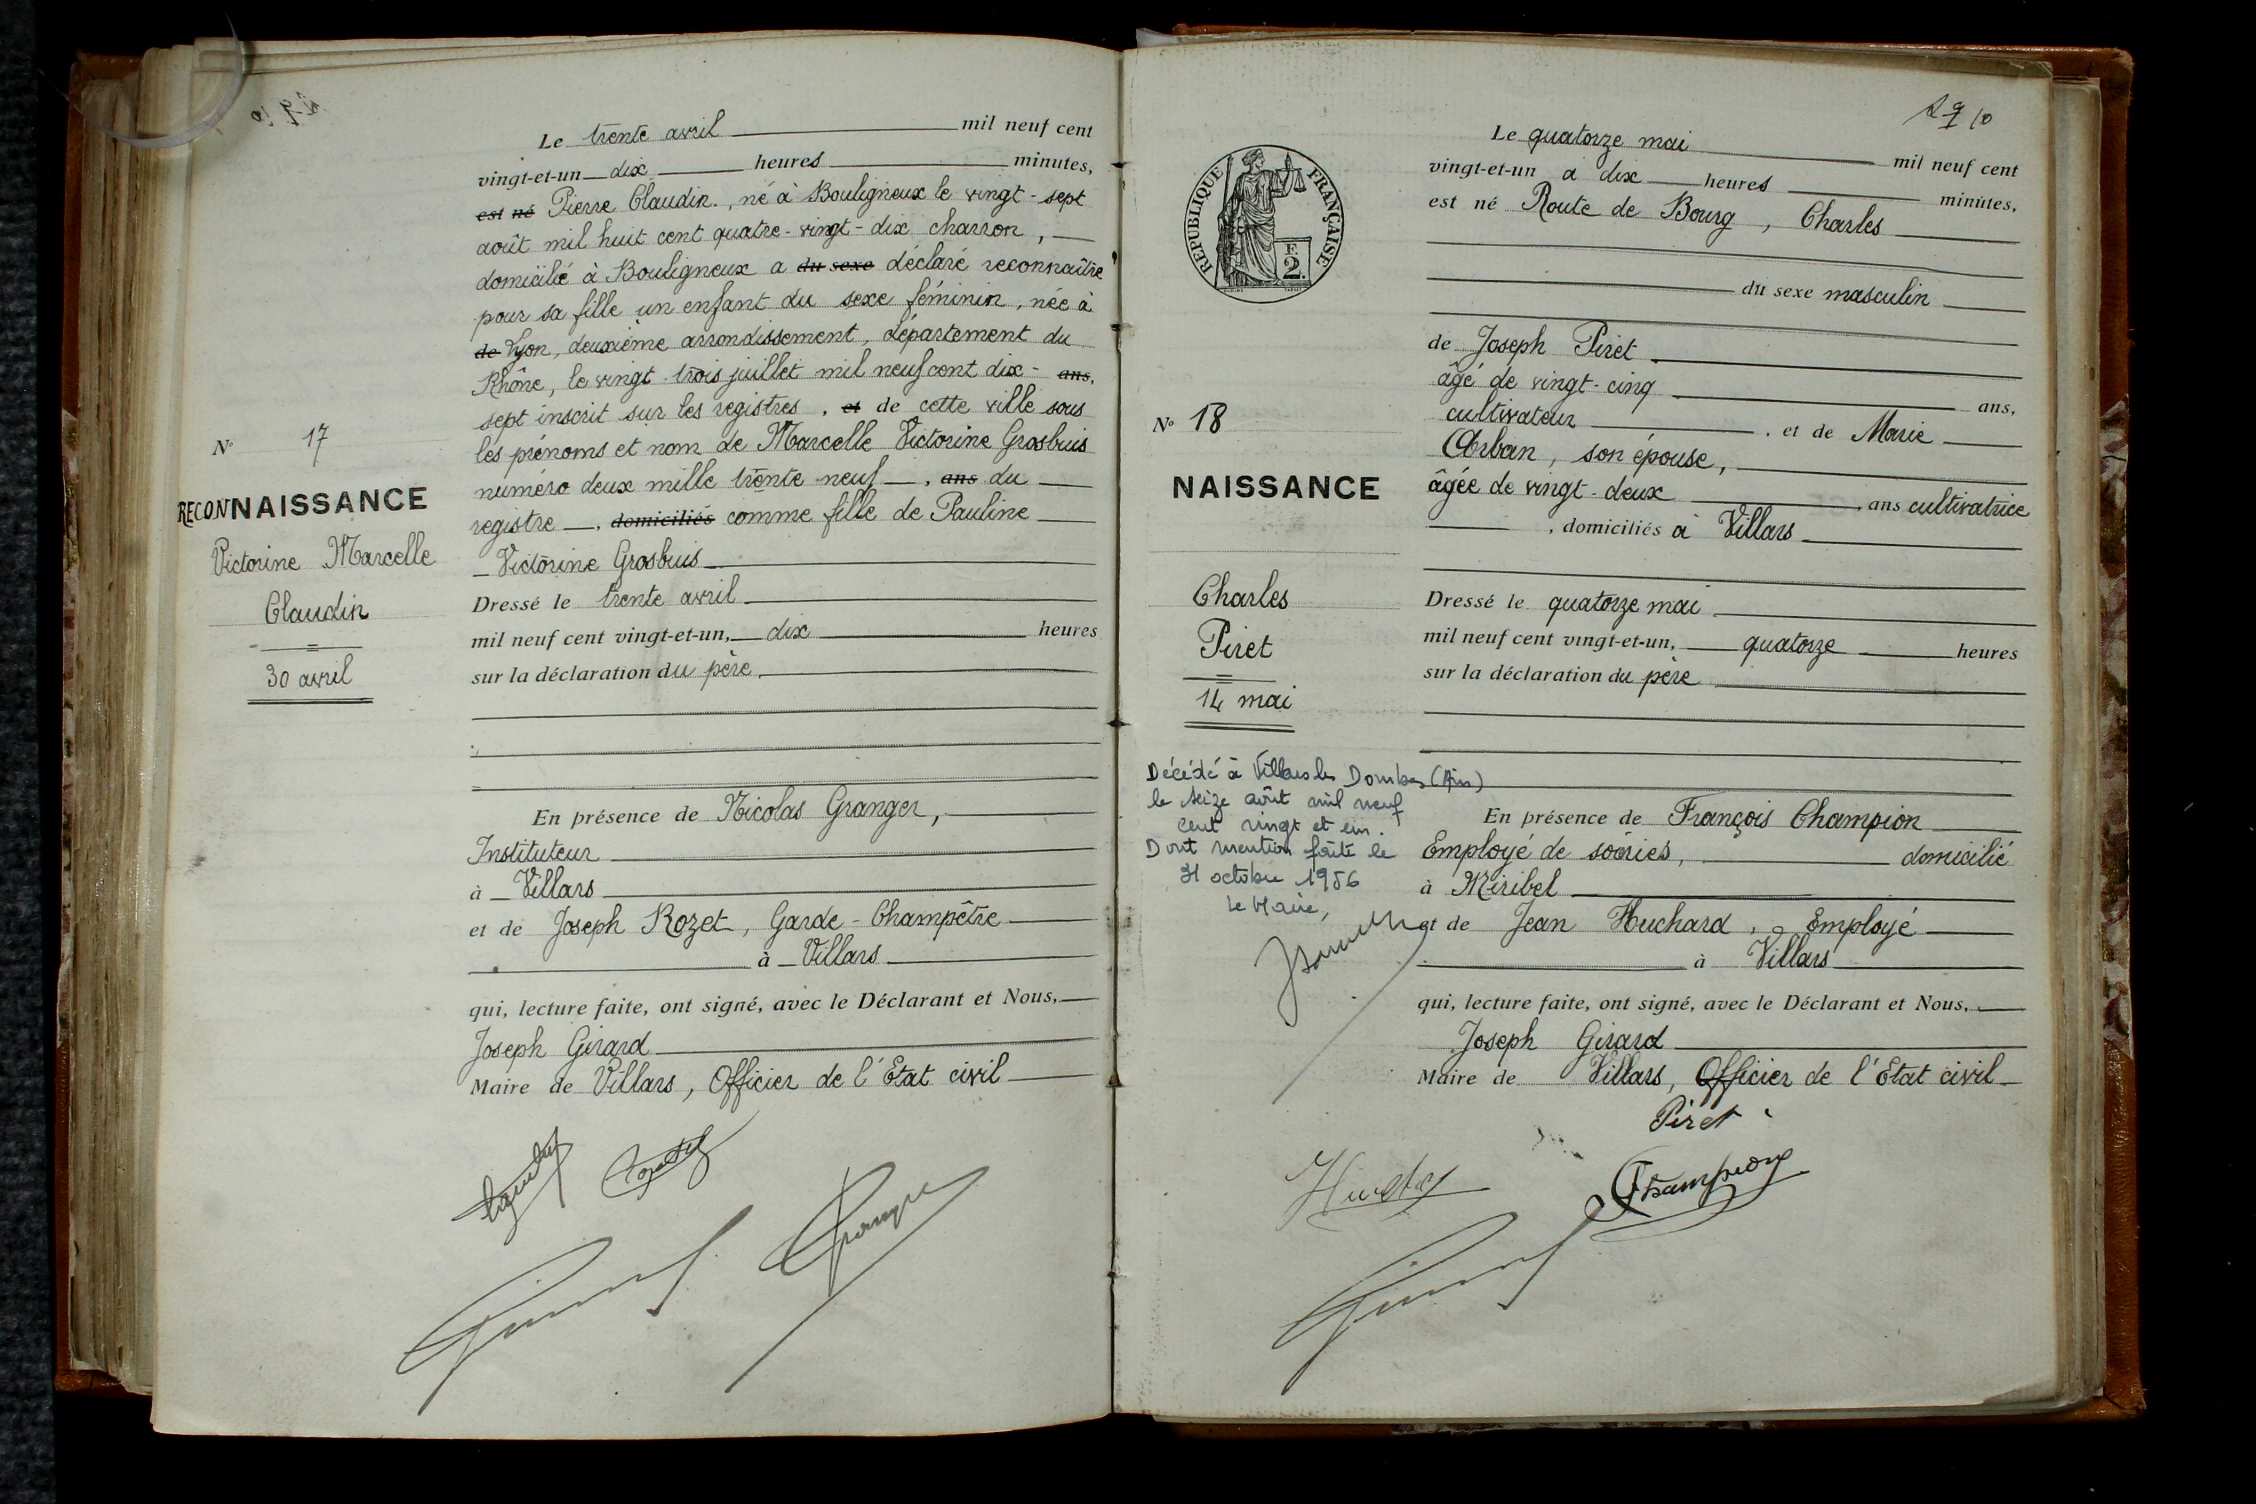 Le trente avril mil neuf cent
vingt-et-un dix heures minutes,
est né Pierre Claudin, né à Bouligneux le vingt-sept
août mil huit cent quatre-vingt-dix charron,
domicilié à Bouligneux a du sexe déclaré reconnaître
pour sa fille un enfant du sexe féminin, née à
de Lyon, deuxième arrondissement, département du
Rhône, le vingt-trois juillet mil neuf cent dix- ans,
sept inscrit sur les registres, et de cette ville sous
les prénoms et nom de Marcelle Victorine Grosbuis
numéro deux mille trente neuf, ans du
registre, domiciliés comme fille de Pauline
Victorine Grosbuis
Dressé le trente avril
mil neuf cent vingt-et-un, dix heures
sur la déclaration du père,
En présence de Nicolas Granger,
Instituteur
à Villars
et de Joseph Rozet, Garde-Champêtre
à Villars
qui, lecture faite, ont signé, avec le Déclarant et Nous,
Joseph Girard
Maire de Villars, Officier de l'Etat civil
N° 17
RECONNAISSANCE
Victorine Marcelle
Claudin
30 avril
RÉPUBLIQUE FRANÇAISE
F.
2.
N° 18
NAISSANCE
Charles
Piret
14 mai
Décédé à Villars les Dombes (Ain)
le seize août mil neuf
cent vingt et un.
Dont mention faite le
31 octobre 1956
Le Maire,
Le quatorze mai mil neuf cent
vingt-et-un à dix heures minutes,
est né Route de Bourg, Charles
du sexe masculin
de Joseph Piret
âgé de vingt-cinq ans,
cultivateur, et de Marie
Arban, son épouse,
âgée de vingt-deux, ans cultivatrice
, domiciliés à Villars
Dressé le quatorze mai
mil neuf cent vingt-et-un, quatorze heures
sur la déclaration du père
En présence de François Champion
Employé de soieries, domicilié
à Miribel
et de Jean Huchard, Employé
à Villars
qui, lecture faite, ont signé, avec le Déclarant et Nous,
Joseph Girard
Maire de Villars, Officier de l'Etat civil
Piret
Champion